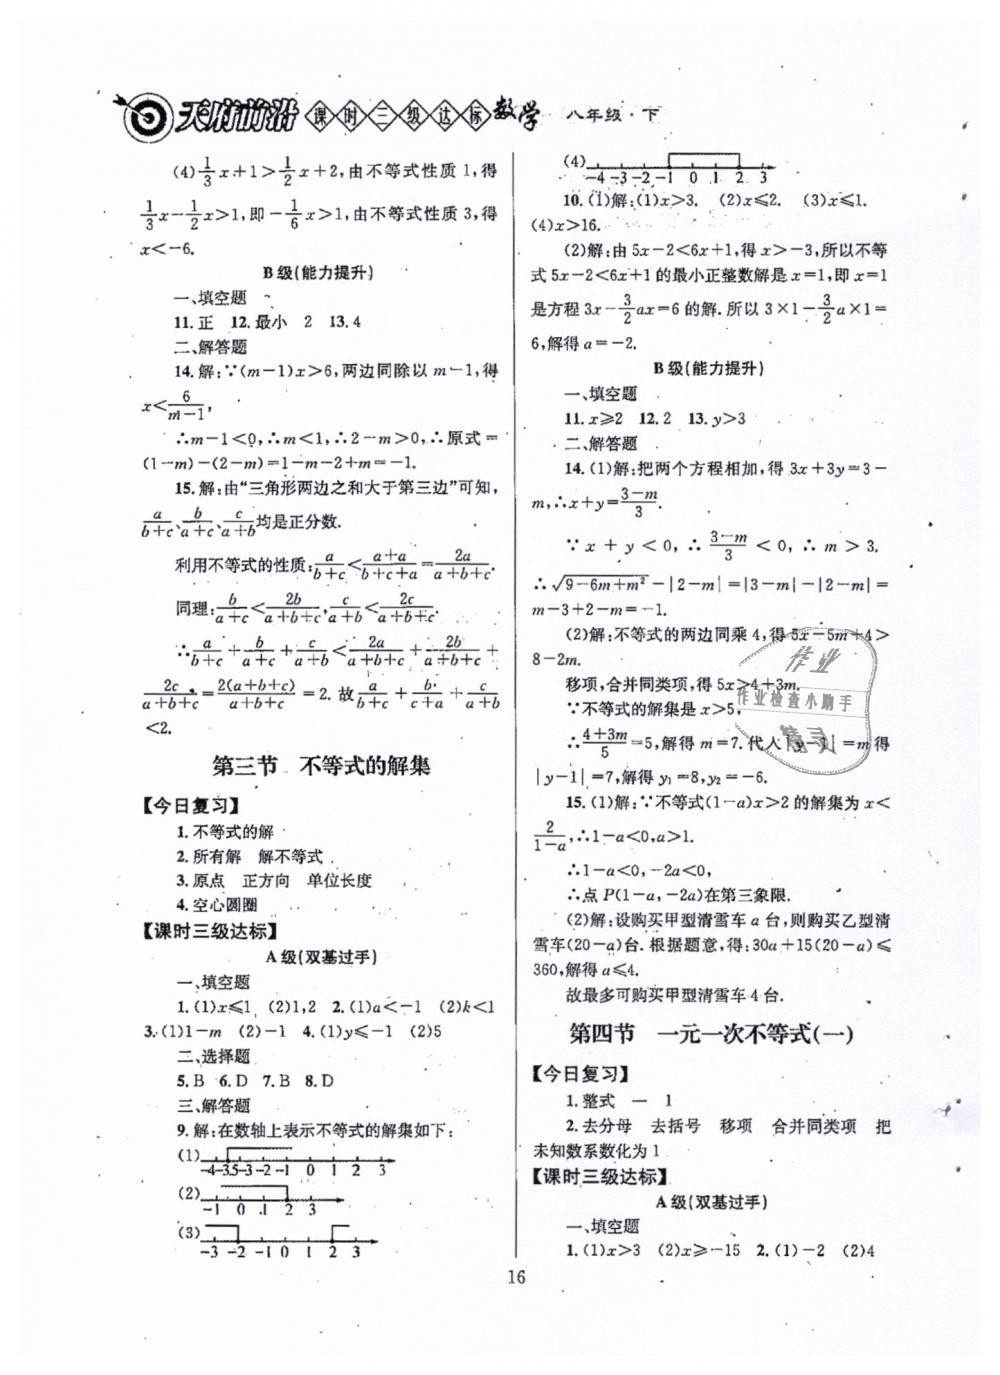 天府前沿 课时三级达标 数学 八年级·下
(4)1/3x+1>1/2x+2,由不等式性质1,得
1/3x-1/2x>1,即-1/6x>1,由不等式性质3,得
x<-6.
B级(能力提升)
一、填空题
11.正 12.最小 2 13.4
二、解答题
14.解:∵(m-1)x>6,两边同除以m-1,得
x<6/(m-1),
∴m-1<0,∴m<1,∴2-m>0,∴原式=
(1-m)-(2-m)=1-m-2+m=-1.
15.解:由“三角形两边之和大于第三边”可知,
a/(b+c)、b/(a+c)、c/(a+b)均是正分数.
利用不等式的性质:a/(b+c)<(a+a)/(b+c+a)=2a/(a+b+c).
同理:b/(a+c)<2b/(a+b+c),c/(a+b)<2c/(a+b+c).
∴a/(b+c)+b/(a+c)+c/(a+b)<2a/(a+b+c)+2b/(a+b+c)+
2c/(a+b+c)=2(a+b+c)/(a+b+c)=2.故a/(b+c)+b/(c+a)+c/(a+b)
<2.
第三节 不等式的解集
【今日复习】
1.不等式的解
2.所有解 解不等式
3.原点 正方向 单位长度
4.空心圆圈
【课时三级达标】
A级(双基过手)
一、填空题
1.(1)x⩽1 (2)1,2 2.(1)a<-1 (2)k<1
3.(1)1-m (2)-1 4.(1)y⩽-1 (2)5
二、选择题
5.B 6.D 7.B 8.D
三、解答题
9.解:在数轴上表示不等式的解集如下:
(1) -4-3.5-3 -2 -1 0 1 2 3
(2) -1 0 1 2 3
(3) -3 -2 -1 0 1 2 3
(4) -4 -3 -2 -1 0 1 2 3
10.(1)解:(1)x>3. (2)x⩽2. (3)x⩽1.
(4)x>16.
(2)解:由5x-2<6x+1,得x>-3,所以不等
式5x-2<6x+1的最小正整数解是x=1,即x=1
是方程3x-3/2ax=6的解.所以3×1-3/2a×1=
6,解得a=-2.
B级(能力提升)
一、填空题
11.x⩾2 12.2 13.y>3
二、解答题
14.(1)解:把两个方程相加,得3x+3y=3-
m,∴x+y=(3-m)/3.
∵x+y<0,∴(3-m)/3<0,∴m>3.
∴√(9-6m+m²)-|2-m|=|3-m|-|2-m|=
m-3+2-m=-1.
(2)解:不等式的两边同乘4,得5x-5m+4>
8-2m.
移项,合并同类项,得5x>4+3m.
∵不等式的解集是x>5,
∴(4+3m)/5=5,解得m=7.代入|y-1|=m得
|y-1|=7,解得y₁=8,y₂=-6.
15.(1)解:∵不等式(1-a)x>2的解集为x<
2/(1-a),∴1-a<0,a>1.
∴1-a<0,-2a<0,
∴点P(1-a,-2a)在第三象限.
(2)解:设购买甲型清雪车a台,则购买乙型清
雪车(20-a)台.根据题意,得:30a+15(20-a)⩽
360,解得a⩽4.
故最多可购买甲型清雪车4台.
第四节 一元一次不等式(一)
【今日复习】
1.整式 一 1
2.去分母 去括号 移项 合并同类项 把
未知数系数化为1
【课时三级达标】
A级(双基过手)
一、填空题
1.(1)x>3 (2)x⩾-15 2.(1)-2 (2)4
16
作业
作业检查小助手